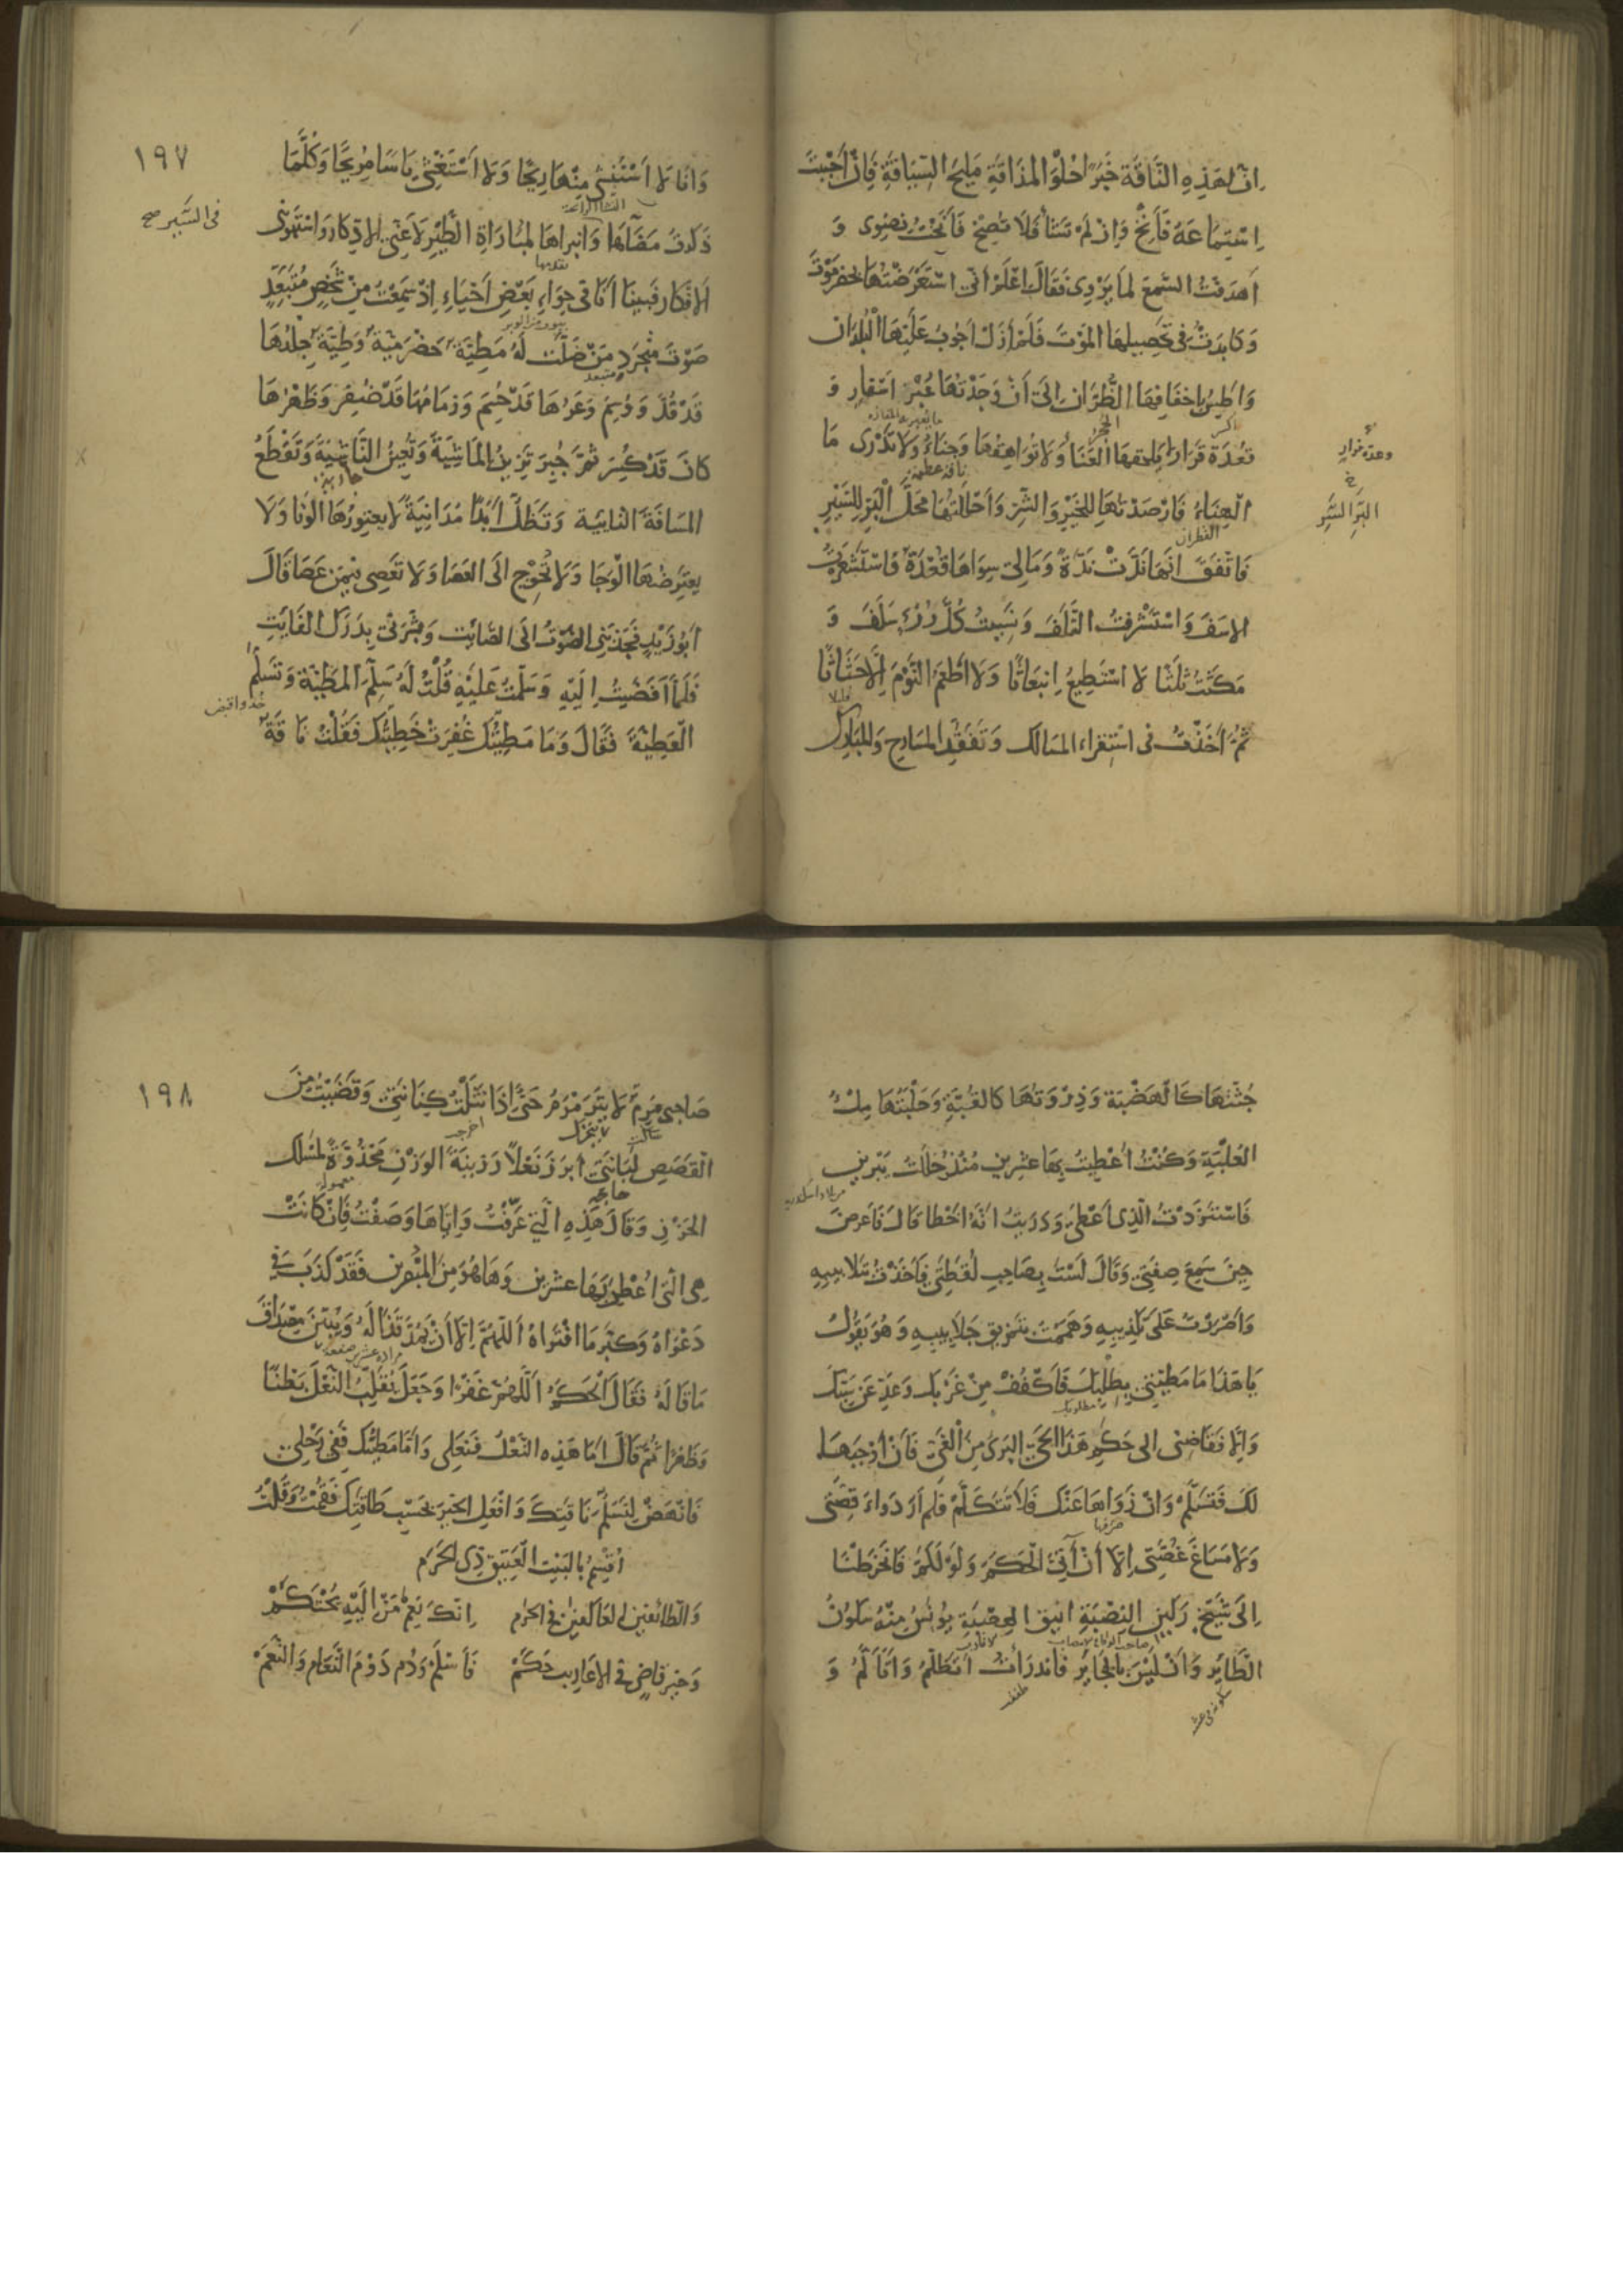 اِنّ لهَذِهِ النَّاقَةِ خَبَرًا حُلْوَ المذَاقَةِ مَلِيحَ السِّيَاقَةِ فَاِنْ اَحْبَبْتَ
اِسْتِمَاعَهُ فَاَنِخْ وَاِنْ لَمْ تَشَأْ فَلَا تُصِخْ فَاَنَخْتُ نِضْوِى وَ
اَهدَفْتُ السَّمعَ لما يَرْوِى فَقَالَ اعْلَمْ اَنّى اسْتَعْرَضْتُهَا بحَضرَمَوْتَ
وَكَابَدتُ فى تَحصِيلِهَا المَوْتَ فَلَمْ اَزَلْ اَجُوبُ عَلَيْهَا الْبُلدَان
وَاَطِسُ بِاِخفَافِهَا الظُّرّانِ اِلَى اَنْ وَجَدْتُهَا عُبْرَ اَسْفارٍ وَ
اكسر الحجر ما يعبر به المفازة
تعُدّةَ قَرَارٍ لَا يلحَقهَا العَنَاءُ وَلَا تُوَاهِقُهَا وَجنَاءُ وَلَا تَدْرِى مَا
وعدة فرار
ناقة عظيمة
الهِنَاءُ فَارْصَدْتُهَا لِلخَيْرِ وَالشّرِّ وَاَحْلَلتُهَا مَحَلَّ الْبَرِّ لِلسَّيْرِ
خ
البَرِّ السَّرِ
القطران
فَاتّفَقَ اَنّهَا نَدَّتْ مُذ مُدّةٍ وَمَا لِى سِوَاهَا قُعْدَةٌ فَاسْتَشْعَرْتُ
الاسَفَ وَاسْتَشْرَفْتُ التَّلَفَ وَنَسِيتُ كُلَّ رُزْءٍ سَلَفَ وَ
مَكَثْتُ ثَلثًا لَا اسْتَطِيعُ اِنبِعَاثًا وَلَا اَطْعَمُ النَّوْمَ اِلَّا حَثَاثًا
قليلا
ثُمَّ اَخَذْتُ فى اسْتِقرَاء المسَالك وَتَفَقُّدِ المسَارِح وَالمبَارِك
١٩٧
وَانَا لَا اَسْتَنْشِى مِنْهَا رِيحًا وَلَا اَسْتَغْشِى يَاسًا مُرِيحًا وَكُلَّمَا
ذَكَرْتُ مَضَآءَهَا وَانبِراهَا لمُبَارَاةِ الطَّيْرِ لَاعَنِى الاِدّكَارُ وَاسْتَهْوَتنِى
فى السَّير صح
تقدمها
الاَفْكَار فَبَينَا اَنَا فى حِوَاءِ بَعْضِ اَحْيَاءِ اِذْ سَمِعْتُ مِنْ شَخصٍ مُتَبَعِّدٍ
صَوْتَ مُتجَرِّدٍ مَنْ ضَلَّتْ لَهُ مَطِيّة حَضْرَمِيّة وَطِيّة جِلْدُهَا
قَدْ قُدَّ وَوُسِمَ وَعَرُّهَا قَدْ حُسِمَ وَزِمَامُهَا قَدْ ضُفِرَ وَظَهْرُهَا
كَانَ قَدْ كُسِرَ ثُمَّ جُبِرَ تَزِينُ المَاشِيَةَ وَتُعِينُ النَّاشِيَةَ وَتَقْطَعُ
المسَافَةَ النّائِيَة وَتَظَلُّ اَبَدًا مُدَانِيَةً لَا يعتِورُهَا الوَنَا وَلَا
يعتَرِضُهَا الْوَجَا وَلَا تُحْوِج الَى العَصَا وَلَا تَعصِى فيمَن عَصَا قَالَ
اَبُو زَيْدٍ فَجَذَبَنِى الصَّوْتُ الَى الصَّائِت وَبَشَّرَنى بِدَرَكِ الفَائِتِ
فَلَمَّا اَفضَيْتُ اِلَيْهِ وَسَلّمْتُ عَلَيْهِ قُلْتُ لَهُ سَلِّم المطِيَّة وَتَسَلَّمْ
خذ واقبض
الْعَطِيَّةَ فَقَالَ وَمَا مَطِيّتُكَ غُفِرَتْ خَطِيّتُكَ فَقُلْتُ نَاقَة
جُثّتهَا كَالْهَضْبَة وَذِرْوَتهَا كَالقُبّةِ وَحَلْبَتهَا مِلْءُ
العُلبَةِ وَكُنْتُ اُعْطِيتُ بِهَا عشرِين مُنْذُ حَلَلْتُ يَبْرِين
فَاسْتَزَدْتُ الّذِى اَعْطى وَدَرَيتُ اَنّهُ اخْطَا قَالَ فَاَعرضَ
حِينَ سَمِعَ صِفَتِى وَقَالَ لَسْتَ بِصَاحِبِ لُقَطَتِى فَاَخَذْتُ بتَلَابِيبِهِ
وَاَصْرَرْتُ عَلَى تَكْذِيبِهِ وَهَمَمْتُ بتَمزِيقِ جَلَابِيبِهِ وَهُوَ يَقُولُ
يَا هَذَا مَا مَطِيّتِى بِطَلِبَتك فَاكْفُفْ مِنْ غَرْبِك وَعَدِّ عَن سَبِّك
مطلوبك
وَاِلّا فَقَاضِنى الى حَكَمِ هَذَا الْحَيّ البَرِىّ مِنَ الْغَىّ فَاَنْ اَوْجَبَهَا
لَكَ فَتَسَلّمْ وَانْ زَوَاهَا عَنْكَ فَلَا تَتَكَلّمْ فَلَم اَرَ دَوَاءَ قِصّتِى
صرفها
وَلَا مَسَاغَ غُصّتِى اِلّا اَنْ آتِىَ الْحَكَمَ وَلَوْ لَكَمَ فَانخَرَطْنَا
اِلَى شَيْخٍ رَكِينِ النِصْبَةِ انِيقِ العِصْبَةِ يُونَسُ مِنهُ سَكُونُ
الطَّايِر وَاَنْ لَيْسَ بِالجَايِر فَاندَرَأْتُ اَتظَلَّمُ وَاَتَاَلَّمُ وَ
١٩٨
صَاحِبِى مُرِمٌّ لَا يتَرَمْرَمُ حَتَّى اِذَا نَثَلْتُ كِنَانَتِى وَقَضَيْتُ مِنَ
ساكت لا يتحرك اخرج
القَصَصِ لُبَانَتِى اَبرَزَ نَعْلاً رَزِينَةَ الوَزْنِ مَحْذُوّةً لمَسْلكِ
حاجتى معمولة
الحَزْنِ وَقَالَ هَذِهِ الّتى عَرّفْتُ وَاِيّاهَا وَصَفْتُ فَاِنْ كَانَتْ
هِىَ الّتى اُعْطِىَ بِهَا عشرِين وَهَا هُوَ مِنَ المُبْصِرِين فَقَدْ كَذَبَ فى
دَعْوَاهُ وَكبُرَ مَا افْتَراهُ اَللّهُمَّ اِلّا اَنْ يَمُدَّ قَذَالَهُ وَيُبَيّنَ مِصدَاقَ
مَا قَالَهُ فَقَالَ الْحَكَمُ اَللّهُمَّ غَفرًا وَجَعَلَ يُقَلِّبُ النَّعْلَ بَطْنًا
وَظَهرًا ثُمّ قَالَ اَمَا هَذِه النَّعْلُ فَنَعلِى وَاَمّا مَطِيّتُك فَفِى رَحْلِى
فَانْهَضْ لِتَسَلُّمِ نَاقَتِكَ وَافْعَلِ الخَيْرَ بحَسَبِ طَاقَتِك فَقُمْتُ وَقُلْتُ
اُقْسِمُ بِالبَيْتِ الْعَتِيقِ ذِى الحَرَم
وَالطّائفِينَ العَاكِفِينَ فى الحرَم اِنّكَ نِعمَ مَنْ اِلَيْهِ يُحْتَكَمْ
وَخَيرُ قَاضٍ فى الاَعَارِيبِ حَكَمْ فَاسْلَمْ وَدُم دَوْمَ النَّعَام وَالنَّعَمْ